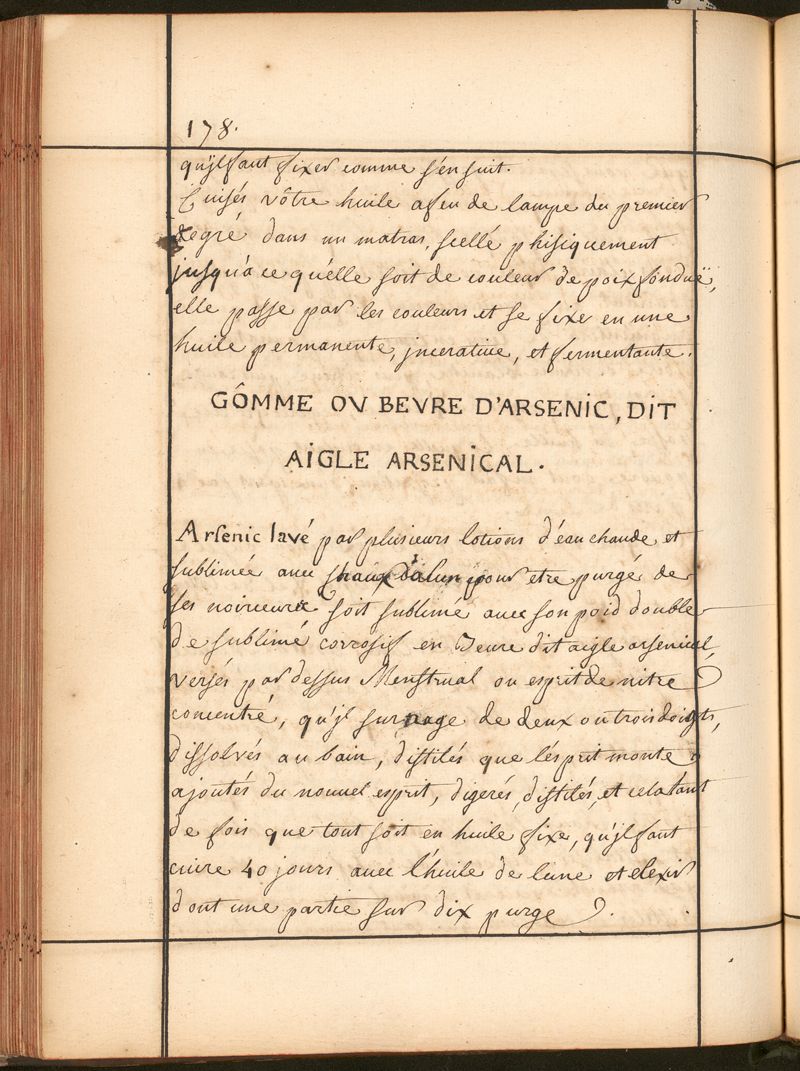 178.
qu'jlfaut fixer comme s'en suit.
Cuisés vôtre huile a feu de lampe du premier
degré dans un matras, scellé phisiquement
jusqu'a ce qu'elle soit de couleur de poix fonduë,
elle passe par les couleurs et se fixe en une
huile permanente, jncerative, et fermentante.
GÔMME OU BEVRE D'ARSENIC, DIT
AIGLE ARSENICAL.
Arsenic lavé par plusieurs lotions d'eau chaude et
sublimée avec pour etre purgé de
ses noirceure soit sublimé avec son poid double
de sublimé corrosif en Beure dit aigle arsenical,
versés par dessus Menstrual ou esprit de nitre
concentré, qu'jl surnage de deux ou trois doigts,
dissolvés au bain, distilés que l'ésprit monte
ajoutés du nouvel esprit, digerés, distilés, et cela tant
de fois que tout soit en huile fixe, qu'jlfaut
cuire 40 jours avec l'huile de lune et elexir
dont une partie sur dix purge